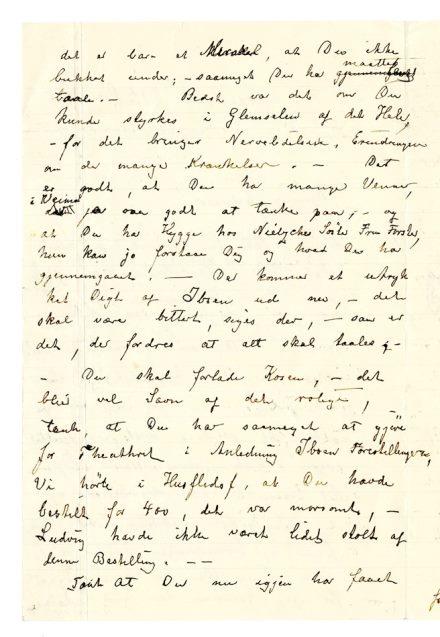 det er bare et Mirakel, at Du ikke
bukket under; – saameget Du har maattet
taale. – Bedst var det om Du
kunde styrkes i Glemselen af det Hele,
– for det bringer Nervelidelse, Erindringen
om de mange Krænkelser. – Det
er godt, at Du har mange Venner,
i Weimar ja var godt at tænke paa, – og
at Du har Hygge hos Søster Fru
hun kan jo forstaae Dig og hvad Du har
gjennemgaaet. – Der kommer et utryk
ket Digt af Ibsen ud nu, – det
skal være bittert, siges der, – saa er
det, der fordres at alt skal taales
– Du skal forlade Kosen, – det
bliv vel Savn af det rolige,
tænk, at Du har saameget at gjøre
for Theathret i Anledning Ibsen Forestillingerne,
Vi hørte i Husflidsf, at Du havde
bestilt for 400, det var morsomt, –
Ludvig havde ikke været lidet stolt af
denne Bestilling. – –
Tænk At Du nu igjen har faaet